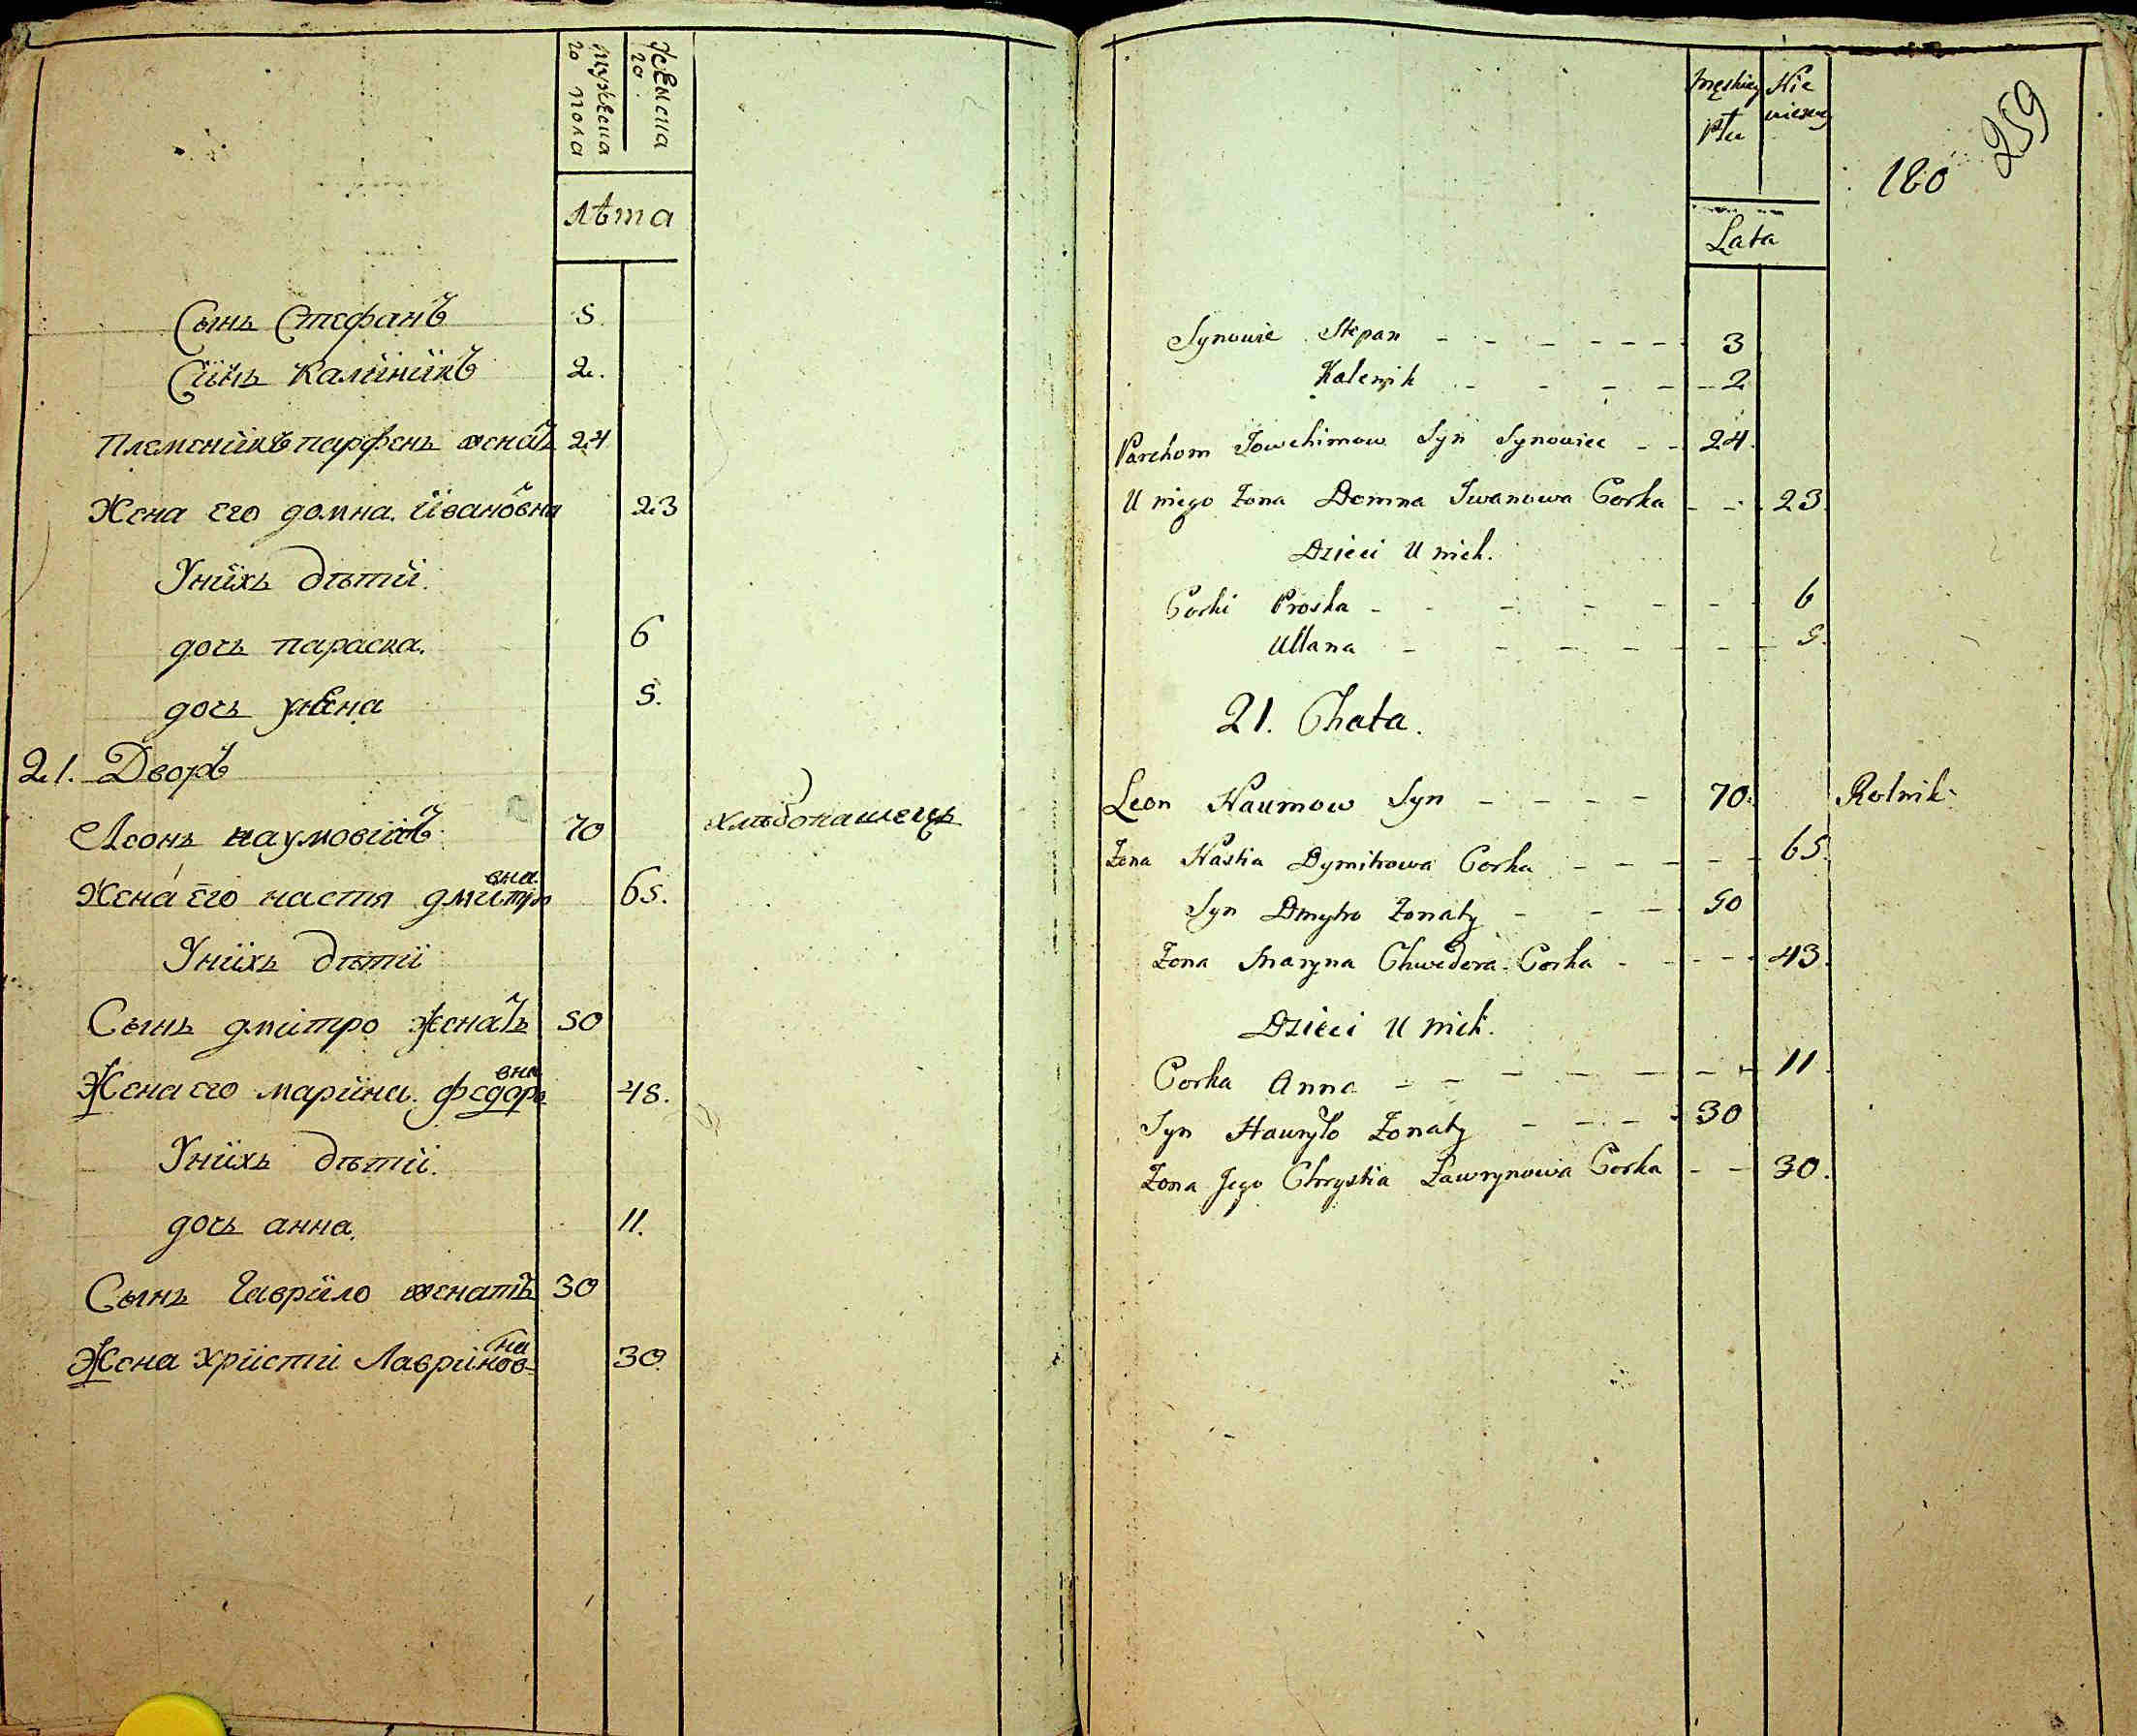 мужеска
го пола
Женска
го
лѣта
Сынъ Стефанъ 5.
Сїнъ Калїнїкъ 2.
Племенїкъ парфенъ женатъ 24
Жена Его домна Їївановна 23
Унїхъ дѣтїї.
дочь параска. 6
дочь 5.
21. Дворъ
Леонъ наумовїчъ 70 хлѣбопашецъ
Жена Его настя дмїтровна 65.
Унїхъ дѣтїї
Сынъ дмїтро Женатъ 50
Жена его марїна. федоровна 45.
Унїхъ дѣтїї.
дочь анна. 11.
Сынъ Гаврїло женатъ 30
Жена хрїстї Лаврїновна 30.
259
180
męskiey
Płci
Lata
Synowie Stepan - - - - - - 3
Kalenik - - - - - 2
Parchom Jowchimow Syn Synowiec - - 24.
U niego Żona Domna Iwanowa Corka - - 23.
Dzieci U nich.
Corki Proska - - - - - - - 6
Ullana - - - - - - - 5.
21. Chata.
Leon Naumow Syn - - - - 70. Rolnik.
Żona Nastia Dymitrowa Corka - - - - - 65.
Syn Dmytro Żonaty - - - 50
Żona Maryna Chwedora Corka - - - - 43.
Dzieci U nich.
Corka Anna - - - - - - - 11.
Syn Hawryło Żonaty - - - - 30
Żona Jego Chrystia Ławrynowa Corka - - 30.